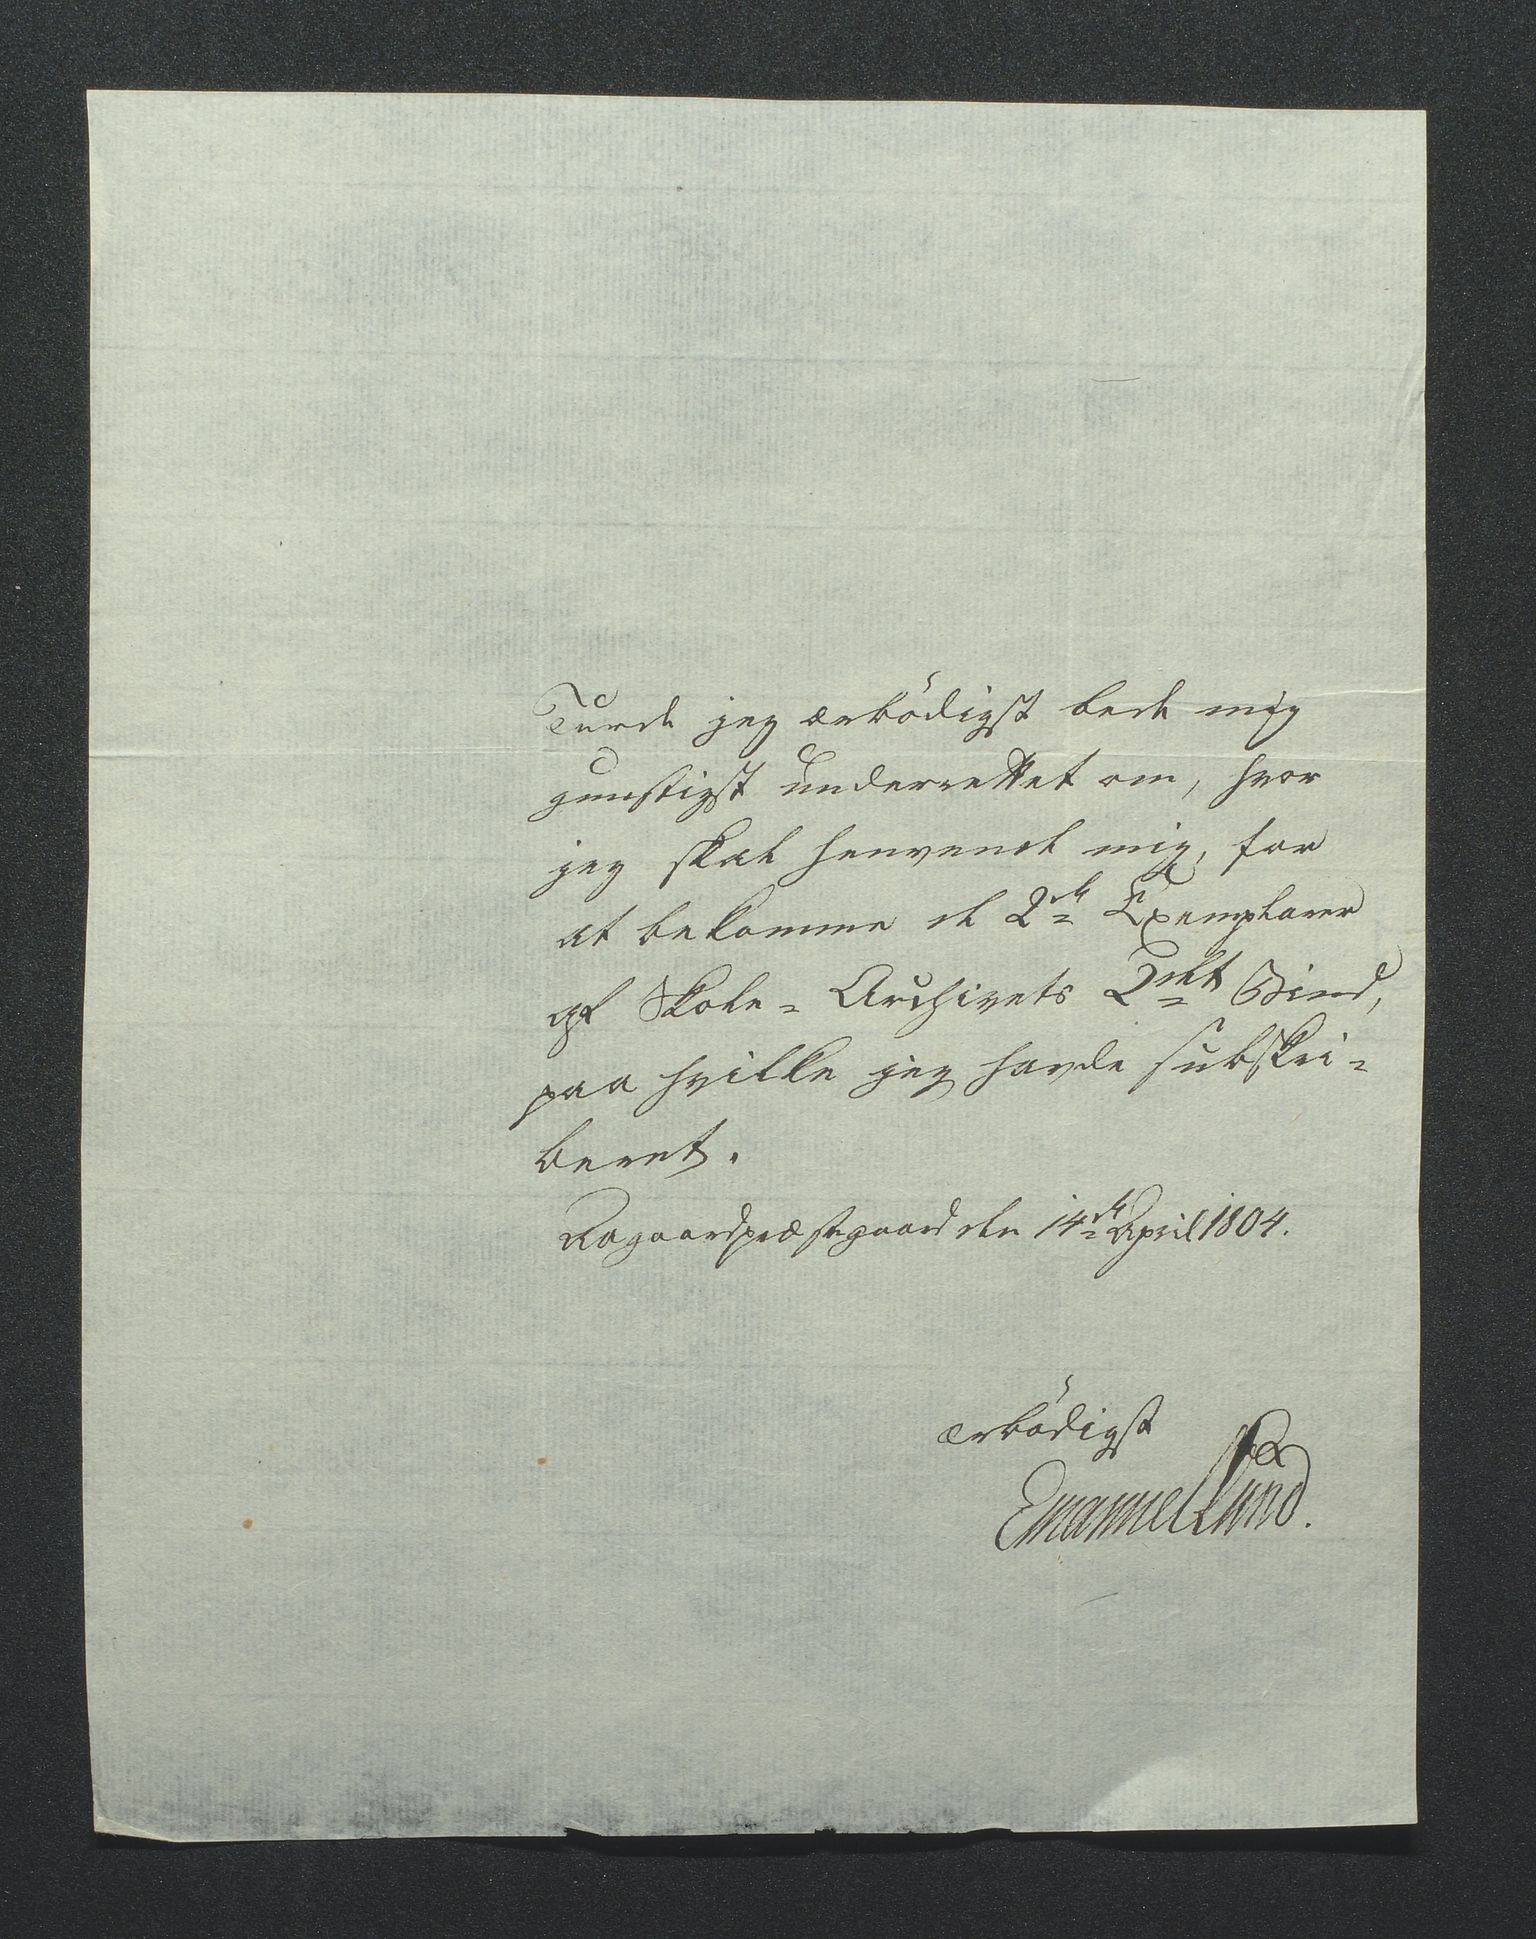 Turde jeg ærbödigst bede mig
gunstigst underrettet om, hvor
jeg skal henvende mig, for
at bekomme de 2de Exemplarer
af Skole-Archivets 2det Bind,
paa hvilke jeg havde subskri-
beret.
Aagaardpræstegaard den 14de April 1804.
ærbödigst
Emanuel Lund.